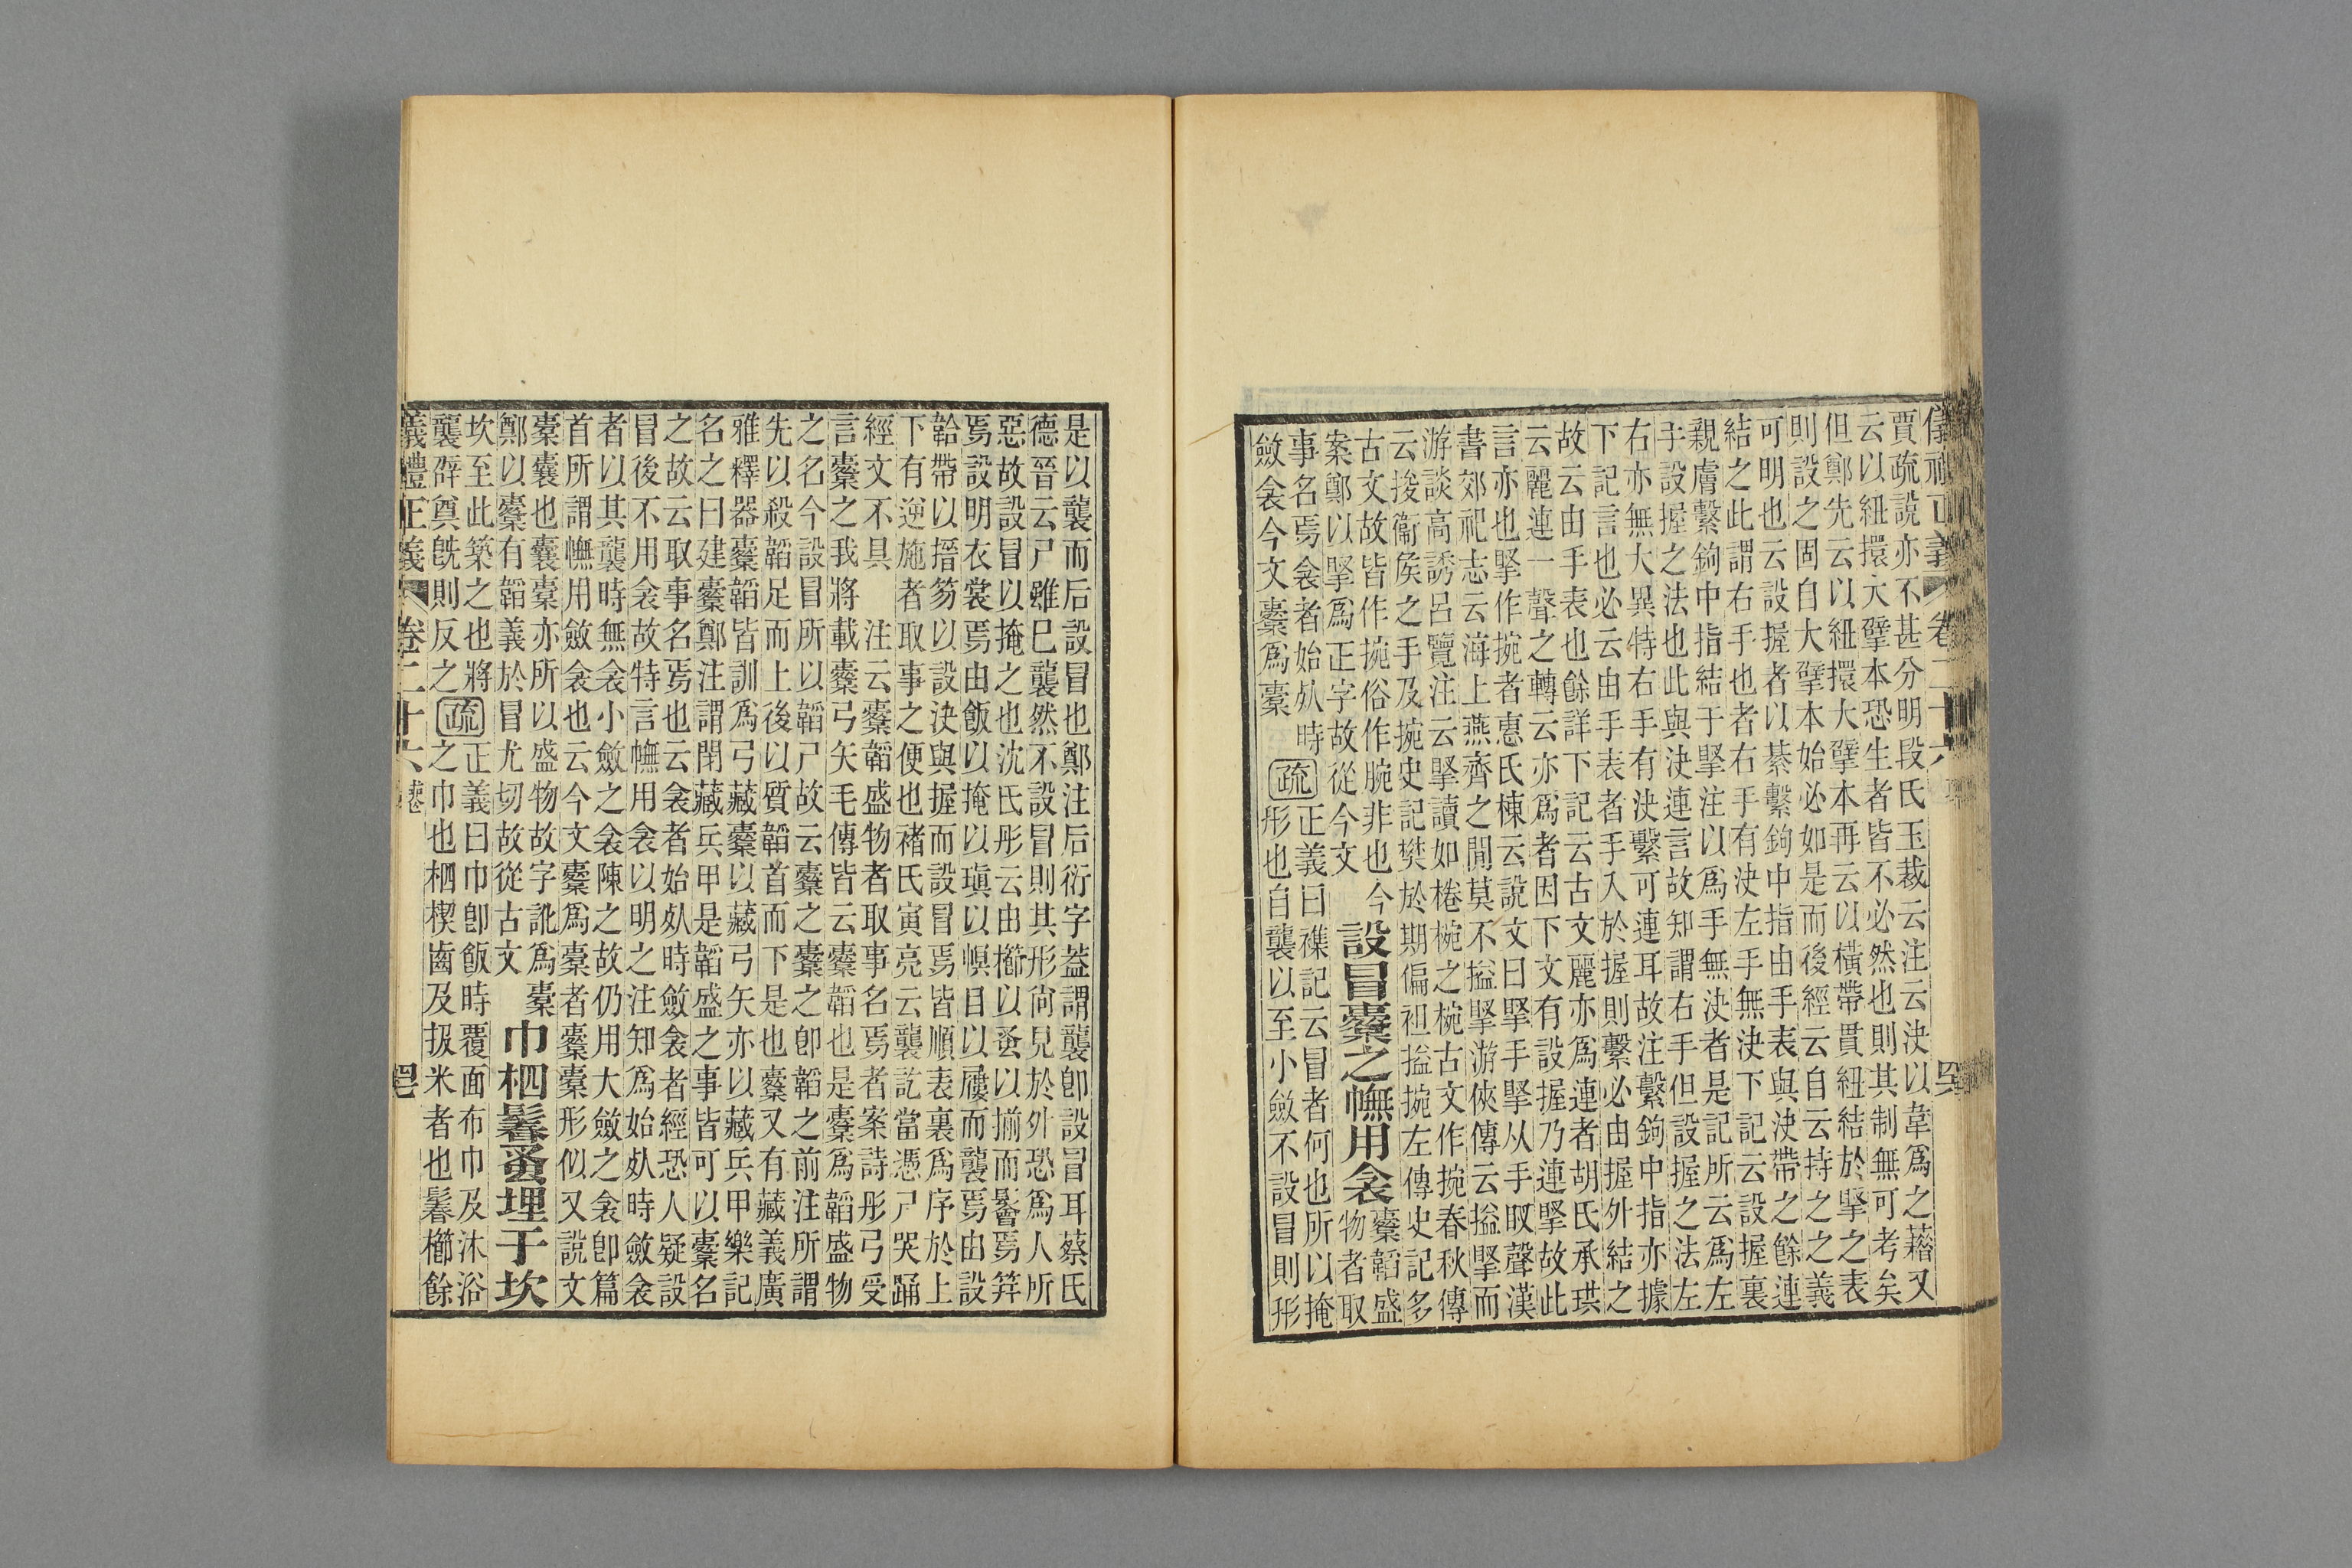 賈疏說亦不甚分明段氏玉裁云注云決以韋爲之藉又
云以紐擐大擘本恐生者皆不必然也則其制無可考矣
但鄭先云以紐擐大擘本再云以橫帶貫紐結於掔之表
則設之固自大擘本始必如是而後經云自云持之之義
可明也云設握者以綦繫鉤中指由手表與決帶之餘連
結之此謂右手也者右手有決左手無決下記云設握裏
親膚繫鉤中指結于掔注以爲手無決者是記所云爲左
手設握之法也此與決連言故知謂右手但設握之法左
右亦無大異特右手有決繫可連耳故注繫鉤中指亦據
下記言也必云由手表者手入於握則繫必由握外結之
故云由手表也餘詳下記云古文麗亦爲連者胡氏承珙
云麗連一聲之轉云亦爲者因下文有設握乃連掔故此
言亦也掔作捥者惠氏棟云說文曰掔手掔从手臤聲漢
書郊祀志云海上燕齊之閒莫不搤掔游俠傳云搤掔而
游談高誘呂覽注云掔讀如棬椀之椀古文作捥春秋傳
云捘衞侯之手及捥史記樊於期偏袒搤捥左傳史記多
古文故皆作捥俗作腕非也今
案鄭以掔爲正字故從今文
設冒櫜之幠用衾
櫜韜盛
物者取
事名焉衾者始死時
斂衾今文櫜爲橐
疏
正義曰襍記云冒者何也所以掩
形也自襲以至小斂不設冒則形
是以襲而后設冒也鄭注后衍字蓋謂襲卽設冒耳蔡氏
德晉云尸雖已襲然不設冒則其形尙見於外恐爲人所
惡故設冒以掩之也沈氏彤云由櫛以蚤以揃而鬠焉筓
焉設明衣裳焉由飯以掩以瑱以幎目以屨而襲焉由設
韐帶以搢笏以設決與握而設冒焉皆順表裏爲序於上
下有逆施者取事之便也褚氏寅亮云襲訖當憑尸哭踊
經文不具 注云櫜韜盛物者取事名焉者案詩彤弓受
言櫜之我將載櫜弓矢毛傳皆云櫜韜也是櫜爲韜盛物
之名今設冒所以韜尸故云櫜之櫜之卽韜之前注所謂
先以殺韜足而上後以質韜首而下是也櫜又有藏義廣
雅釋器櫜韜皆訓爲弓藏櫜以藏弓矢亦以藏兵甲樂記
名之曰建櫜鄭注謂閉藏兵甲是韜盛之事皆可以櫜名
之故云取事名焉也云衾者始死時斂衾者經恐人疑設
冒後不用衾故特言幠用衾以明之注知爲始死時斂衾
者以其襲時無衾小斂之衾陳之故仍用大斂之衾卽篇
首所謂幠用斂衾也云今文櫜爲橐者櫜橐形似又說文
櫜囊也囊橐亦所以盛物故字訛爲橐
鄭以櫜有韜義於冒尤切故從古文
巾柶鬊蚤埋于坎
坎至此築之也將
襲辟奠旣則反之
疏
正義曰巾卽飯時覆面布巾及沐浴
之巾也柶楔齒及扱米者也鬊櫛餘
義禮正義 卷二十六